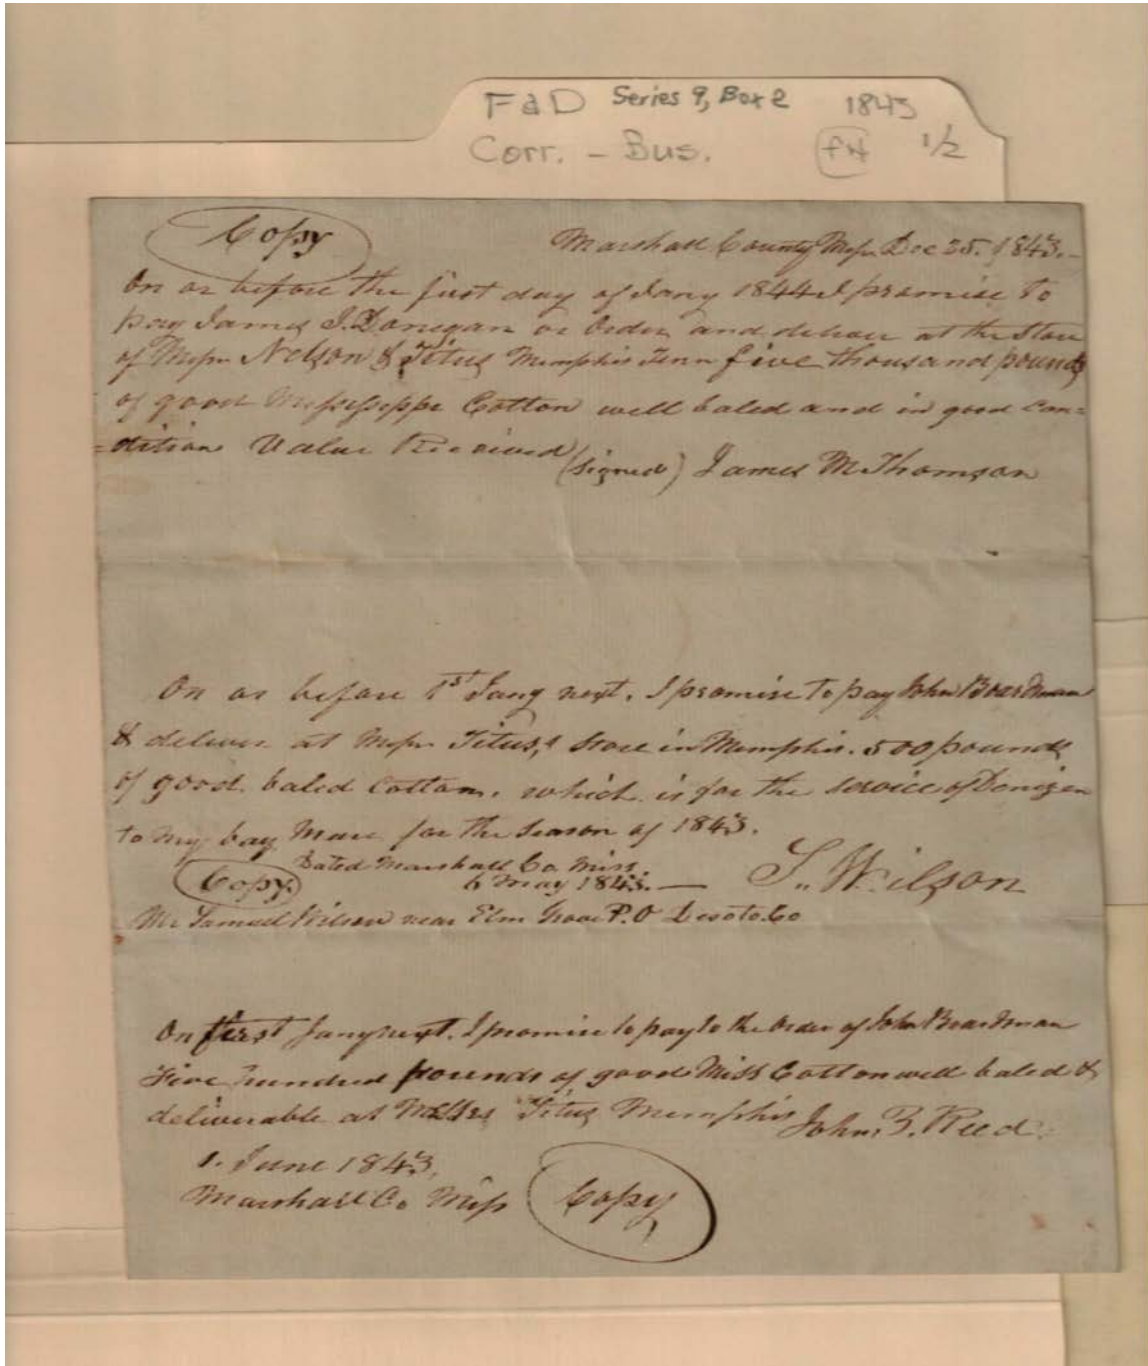 FaD Series 9, Box 2 1843
Corr. - Bus. 1/2
Copy
Marshall County Missi Dec 25. 1843.-
On or before the first day of Jany 1844 I promise to
pay James J. Donegan or Order and deliver at the Store
of Messrs Nelson & Titus Memphis Tenn five thousand pounds
of good Mississippi Cotton well baled and in good con=
=dition Value Received
(signed) James M Thomson
On or before 1st Jany next. I promise to pay John Boardman
& deliver at Messrs Titus,s Store in Memphis. 500 pounds
of good baled Cotton. which is for the Service of Donigan
to my bay Mare for the Season of 1843.
Dated Marshall Co. Miss.
6 May 1843. — S. Wilson
Copy
Mr Samuel Wilson near Elm Grove P.O Desoto Co
On first Jany next. I promise to pay to the Order of John Boardman
Five hundred pounds of good Miss Cotton well baled &
deliverable at Titus Memphis
John. Reed.
1. June 1843,
Marshall Co Miss
Copy